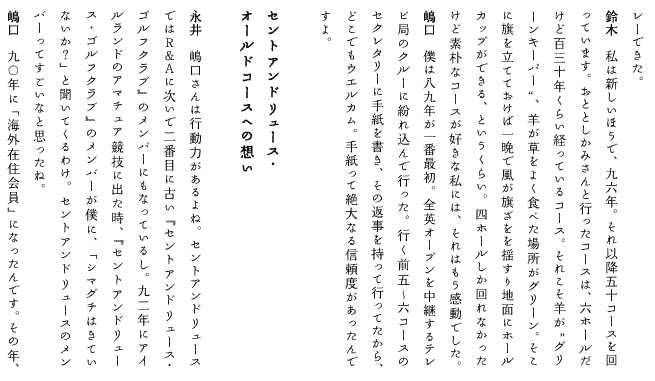 レーできた。
鈴木　私は新しいほうで、九六年。それ以降五十コースを回
っています。おととしかみさんと行ったコースは、六ホールだ
けど百三十年くらい経っているコース。それこそ羊が〝グリ
ーンキーパー〟、羊が草をよく食べた場所がグリーン。そこ
に旗を立てておけば一晩で風が旗ざおを揺すり地面にホール
カップができる、というくらい。四ホールしか回れなかった
けど素朴なコースが好きな私には、それはもう感動でした。
嶋口　僕は八九年が一番最初。全英オープンを中継するテレ
ビ局のクルーに紛れ込んで行った。行く前五〜六コースの
セクレタリーに手紙を書き、その返事を持って行ってたから、
どこでもウエルカム。手紙って絶大なる信頼度があったんで
すよ。
セントアンドリュース・
オールドコースへの想い
永井　嶋口さんは行動力があるよね。セントアンドリュース
ではR&Aに次いで二番目に古い『セントアンドリュース・
ゴルフクラブ』のメンバーにもなっているし。九二年にアイ
ルランドのアマチュア競技に出た時、『セントアンドリュー
ス・ゴルフクラブ』のメンバーが僕に、「シマグチはきてい
ないか？」と聞いてくるわけ。セントアンドリュースのメン
バーってすごいなと思ったね。
嶋口　九〇年に「海外在住会員」になったんです。その年、